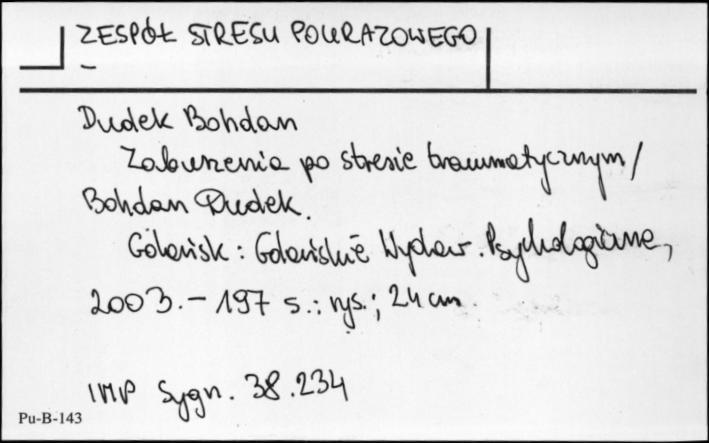 ZESPÓŁ STRESU POURAZOWEGO
–
Dudek Bohdan
Zaburzenia po stresie traumatycznym /
Bohdan Dudek.
Gdańsk : Gdańskie Wydaw. Psychologiczne,
2003. – 197 s. : rys. ; 24 cm.
IMP Sygn. 38.234
Pu-B-143